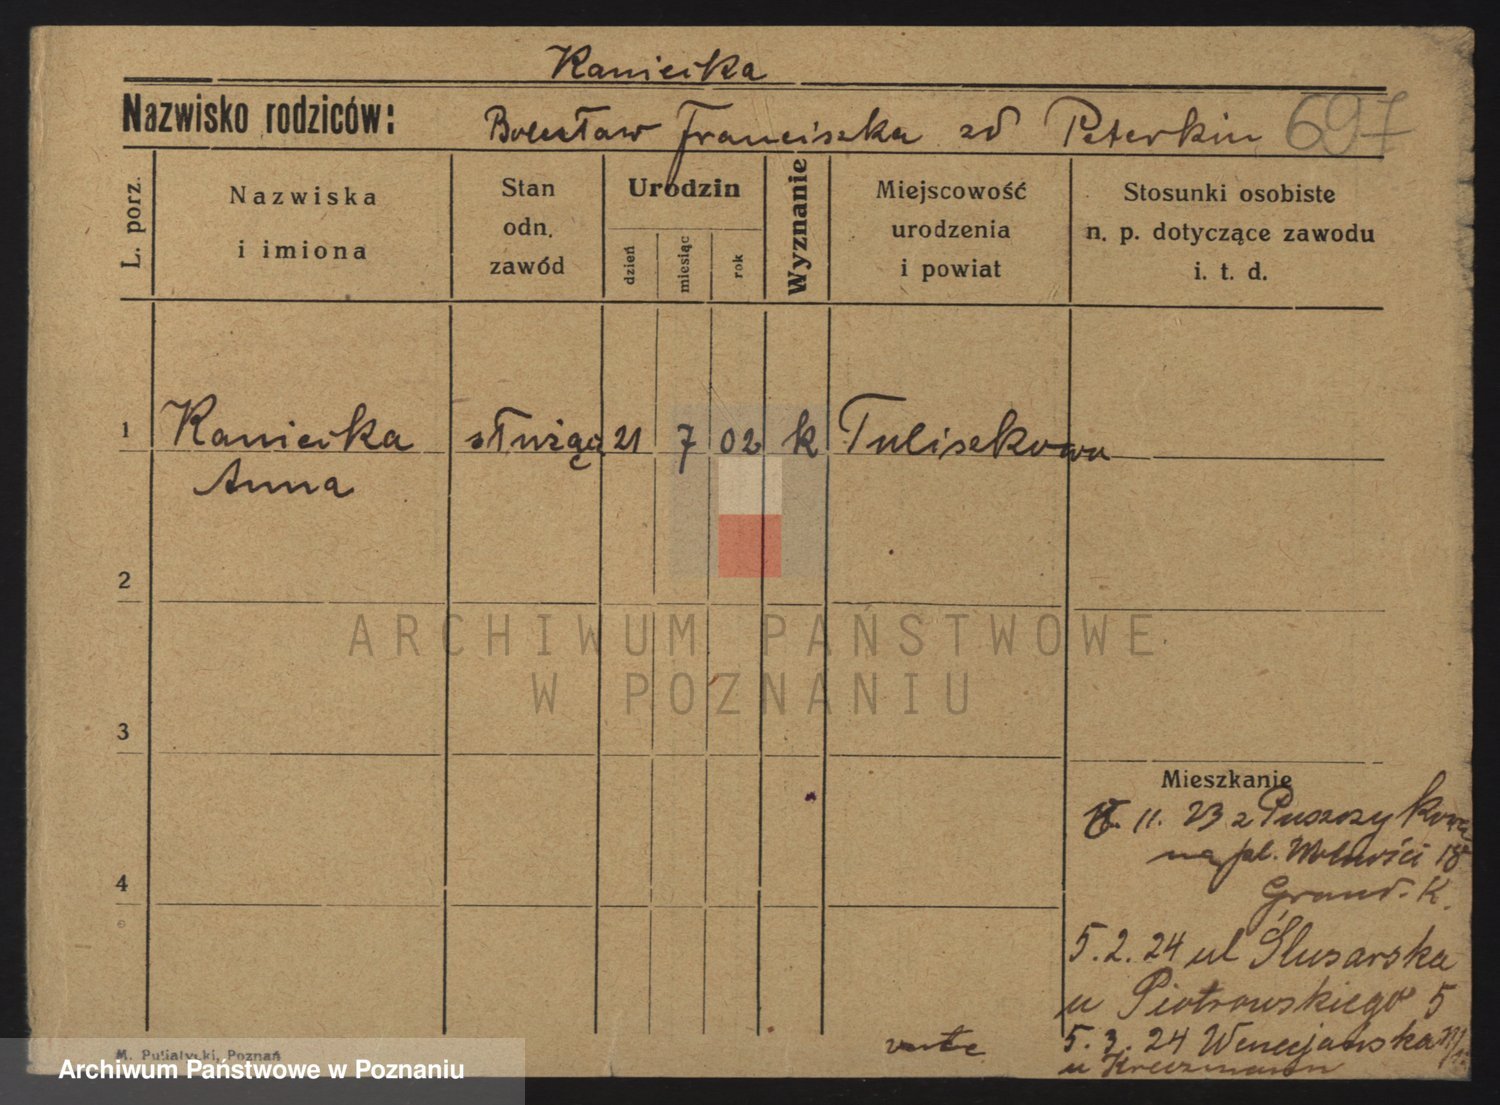 Kaniecka
Nazwisko rodziców: Bolesław Franciszka zd Peterkin 697
L. porz.
Nazwiska
i imiona
Stan
odn.
zawód
Urodzin
dzień
miesiąc
rok
Wyznanie
Miejscowość
urodzenia
i powiat
Stosunki osobiste
n. p. dotyczące zawodu
i. t. d.
1 Kaniecka służąca 21 7 02 k Tuliszkowa
Anna
2
3
4
Mieszkanie
11. 23 z Puszczykowa
na pl. Wolności 18
Grand. K.
5. 2. 24 ul Ślusarska
u Piotrowskiego 5
5. 3. 24 Wenecjańska
u
verte
M. Putiatycki, Poznań
ARCHIWUM PAŃSTWOWE
W POZNANIU
Archiwum Państwowe w Poznaniu